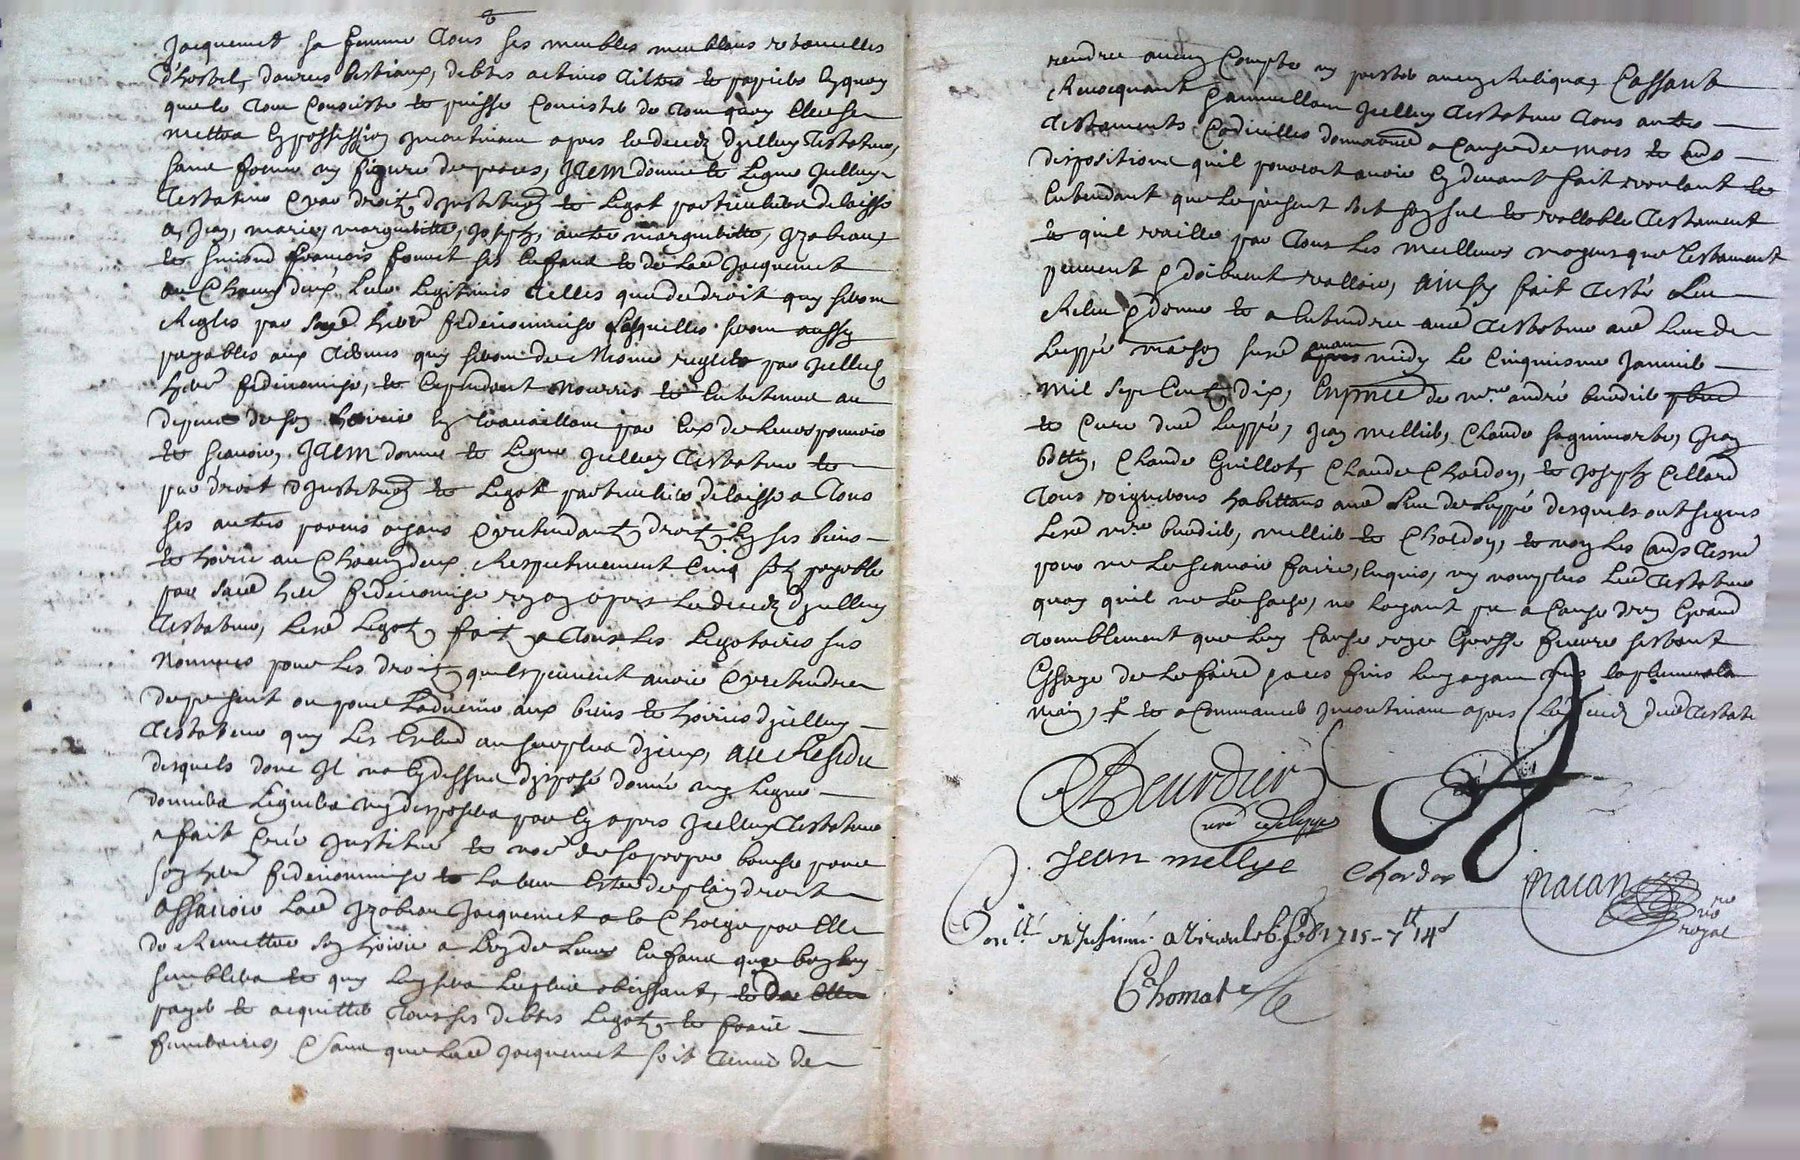 Jacquemet sa femme tous ses meubles meublans ustancilles
d'hostel, danrees bestiaux, debtes actives tiltres et papiers en quoy
que le tout consiste et puisse consister de tout quoy elle se
mettra en possession incontinant apres le decedz d'jcelluy testateur,
sans forme ny figure de proces, Jtem donne et legue jcelluy
testateur et par droit d'jnstitution et legat particulier delaisse
a Jean, marie, margueritte, joseph, autre margueritte, yzabeau,
et françois fournet ses enfans et de lad Jacquemet
a chacun d'eux leurs legitimes telles que de droit qui seront
reglés par sad herre fideicommise lesquelles seront aussy
payables aux termes qui seront de mesme reglés par jcelle
herre fideicommise, et cependant nourris et entretenus au
depens de son hoirie en travaillant par eux de leurs pouvoir
et scavoir, Jtem donne et legue jcelluy testateur et
par droit d'jnstitution et legat particulier delaisse a tous
ses autres parens ayans et pretendant droit en ses biens
et hoirie a chacun d'eux respectivement cinq sol payable
par sad herre fideicommise un an apres le decedz d'jcelluy
testateur, lesd legatz fait a tous les legataires sus
nommés pour les droitz qu'ils peuvent avoir et pretendre
de present ou pour l'advenir aux biens et hoirie d'jcelluy
testateur qui les exclud au surplus d'jceux, au residu
desquels dont jl n'a cy dessus disposé donné ny legué
donnera leguera ny disposera par cy apres jcelluy testateur
a fait créé jnstitué et nomé de sa propre bouche pour
son herre fideicommise et la veut estre de plain droit
assavoir lad yzabeau Jacquemet a la charge par elle
de remettre son hoirie a l'un de leurs enfans que bon luy
semblera et qui luy sera le plus obeissant, et
payer et acquitter tous ses debtes legatz et frais
funeraires, sans que lad Jacquemet soit tenue de
rendre aucun compte ny prester aucun reliqua, cassant
revocquant et annullant jcelluy testateur tous autres
testaments codicilles donnations a cause de mort et autres
dispositions qu'il pourroit avoir cy devant fait voulant et
entendant que le present soit son seul et vallable testament
et quil vaille par tous les meilleurs moyens que testament
peuvent et doibvent valloir, ainsy fait testé leu
releu et donné et a entendre aud testateur aud lieu de
Luppé maison sured avant midy le cinquiesme janvier
mil sept cent dix, en pnce de mre andré beurdier pbre
et curé dud Luppé, jean mellier, claude, jean
, claude Guillot, claude chardon, et joseph cellard
tous vignerons habittans aud lieu de Luppé desquels ont signés
led mre beurdier, mellier et chardon, et non les autres tesm
pour ne le scavoir faire, enquis, ny non plus led testateur
quoy quil ne le sache, ne l'ayant pu a cause d'un grand
tremblement que luy cause une grosse fievre s'estant
essayé de le faire a ces fins luy ayant mis la plume a la
main, et a commancer jncontinant apres le decedz dud testat
Beurdier
curé de luppé
jean mellyé chardon nacan
nore
royal
Conllé et jnsinué a virieu le 6 feb 1715 - 7tt 14s
Thomas